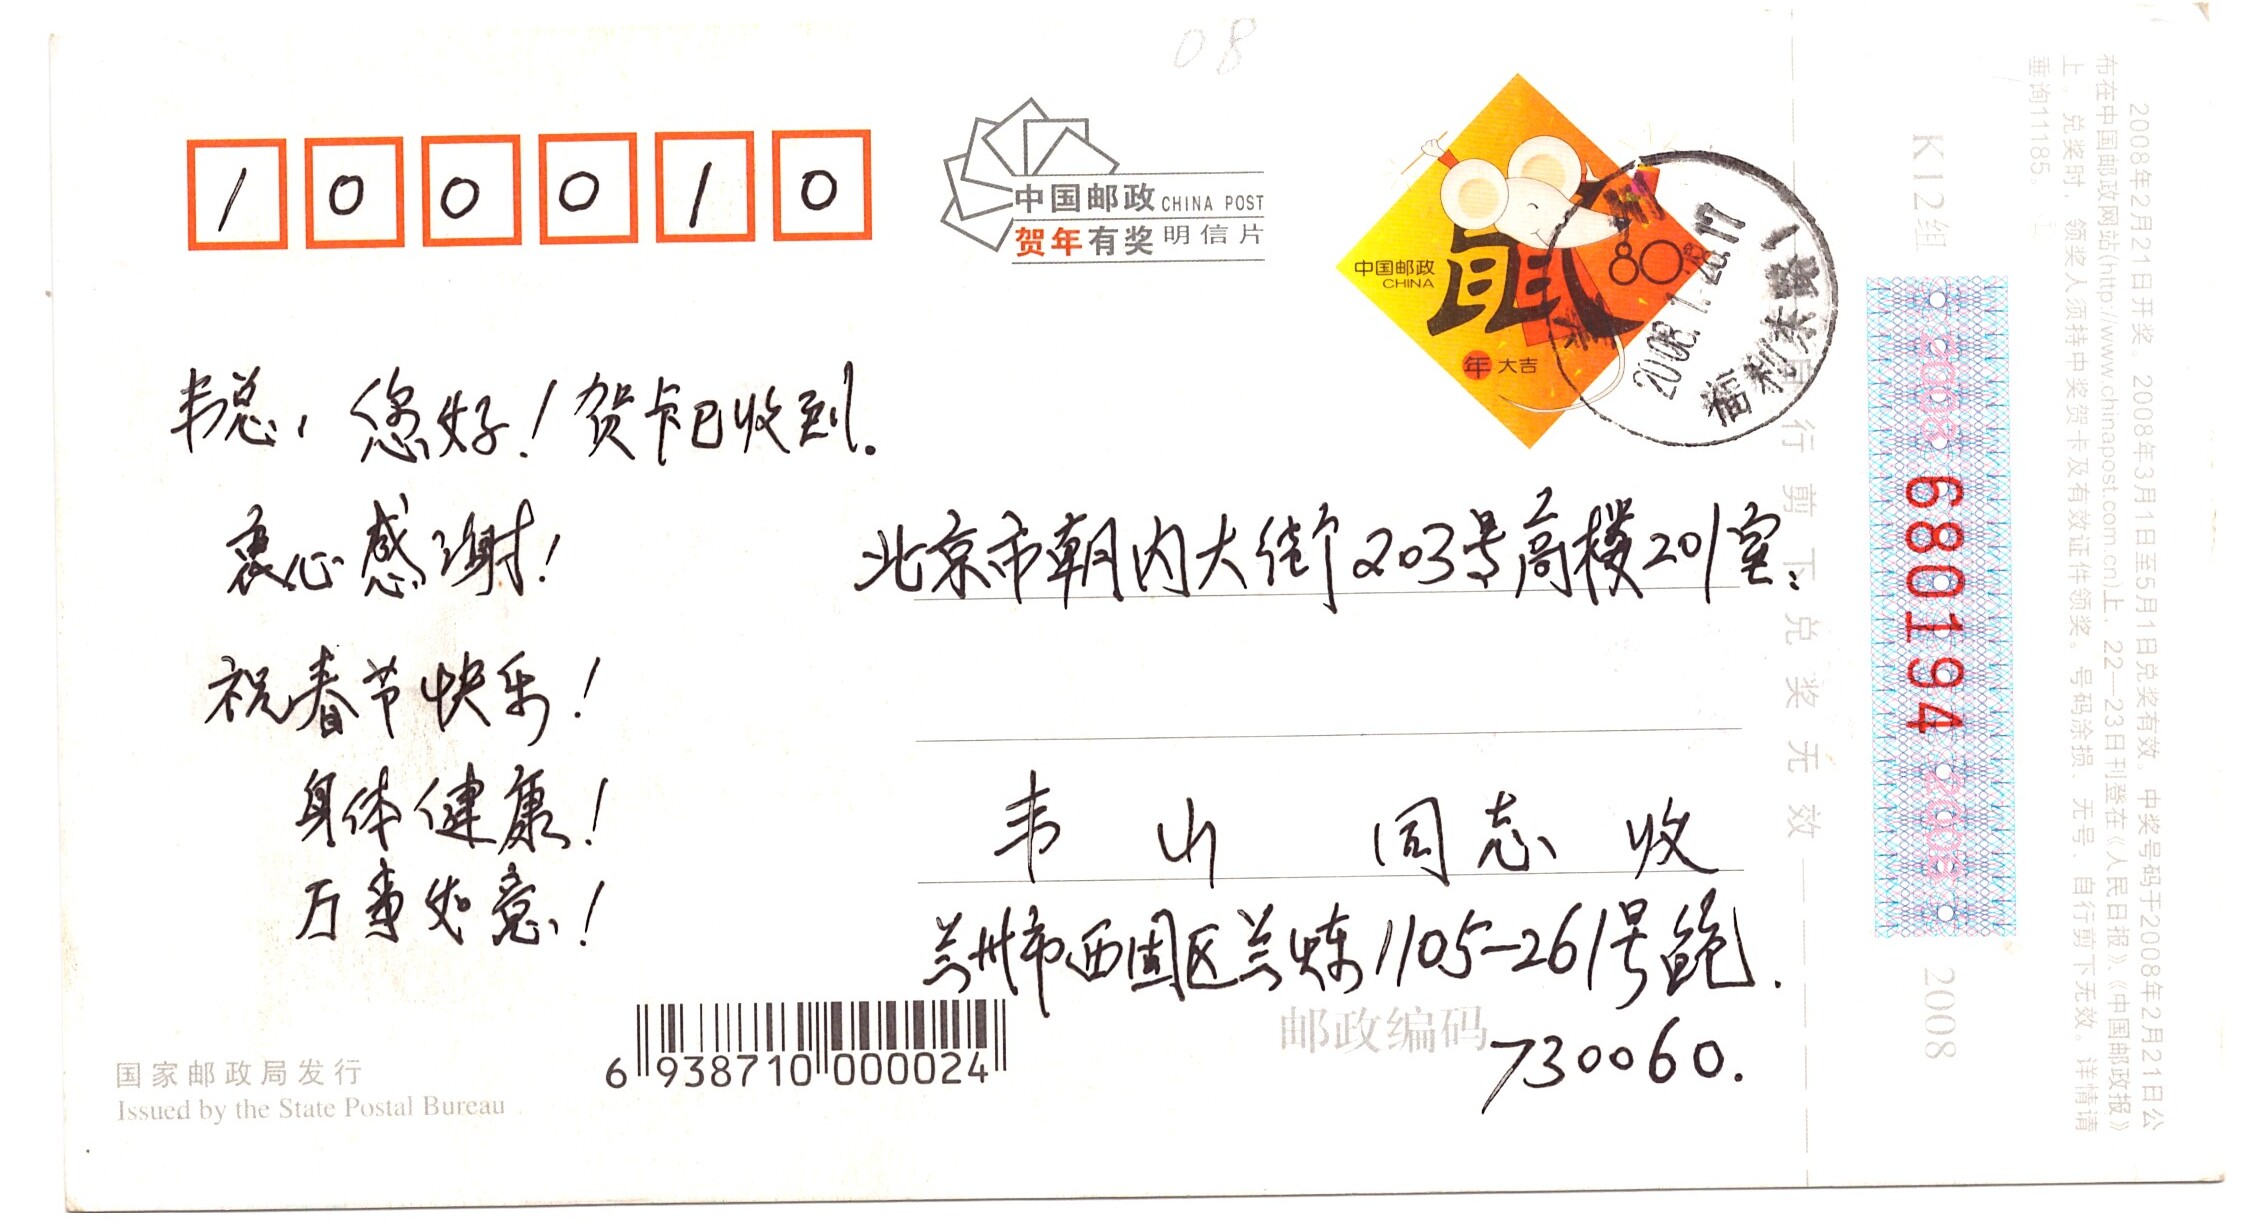 08
1 0 0 0 1 0
中国邮政 CHINA POST
贺年有奖 明信片
中国邮政
CHINA
鼠
80分
年 大吉
2008.1.28.17
福利东路1
韦总，您好！贺卡已收到.
衷心感谢！
祝春节快乐！
身体健康！
万事如意！
北京市朝内大街203号高楼201室:
韦 山 同志 收
兰州市西固区兰炼1105-261号鲍.
邮政编码 730060.
6 938710 000024
国家邮政局发行
Issued by the State Postal Bureau
自行剪下兑奖无效
K12组
2008 680194 2008
2008
2008年2月21日开奖。2008年3月1日至5月1日兑奖有效。中奖号码于2008年2月21日公
布在中国邮政网站(http://www.chinapost.com.cn)上，22—23日刊登在《人民日报》、《中国邮政报》
上。兑奖时，领奖人须持中奖贺卡及有效证件领奖。号码涂损、无号、自行剪下无效。详情请
垂询11185。